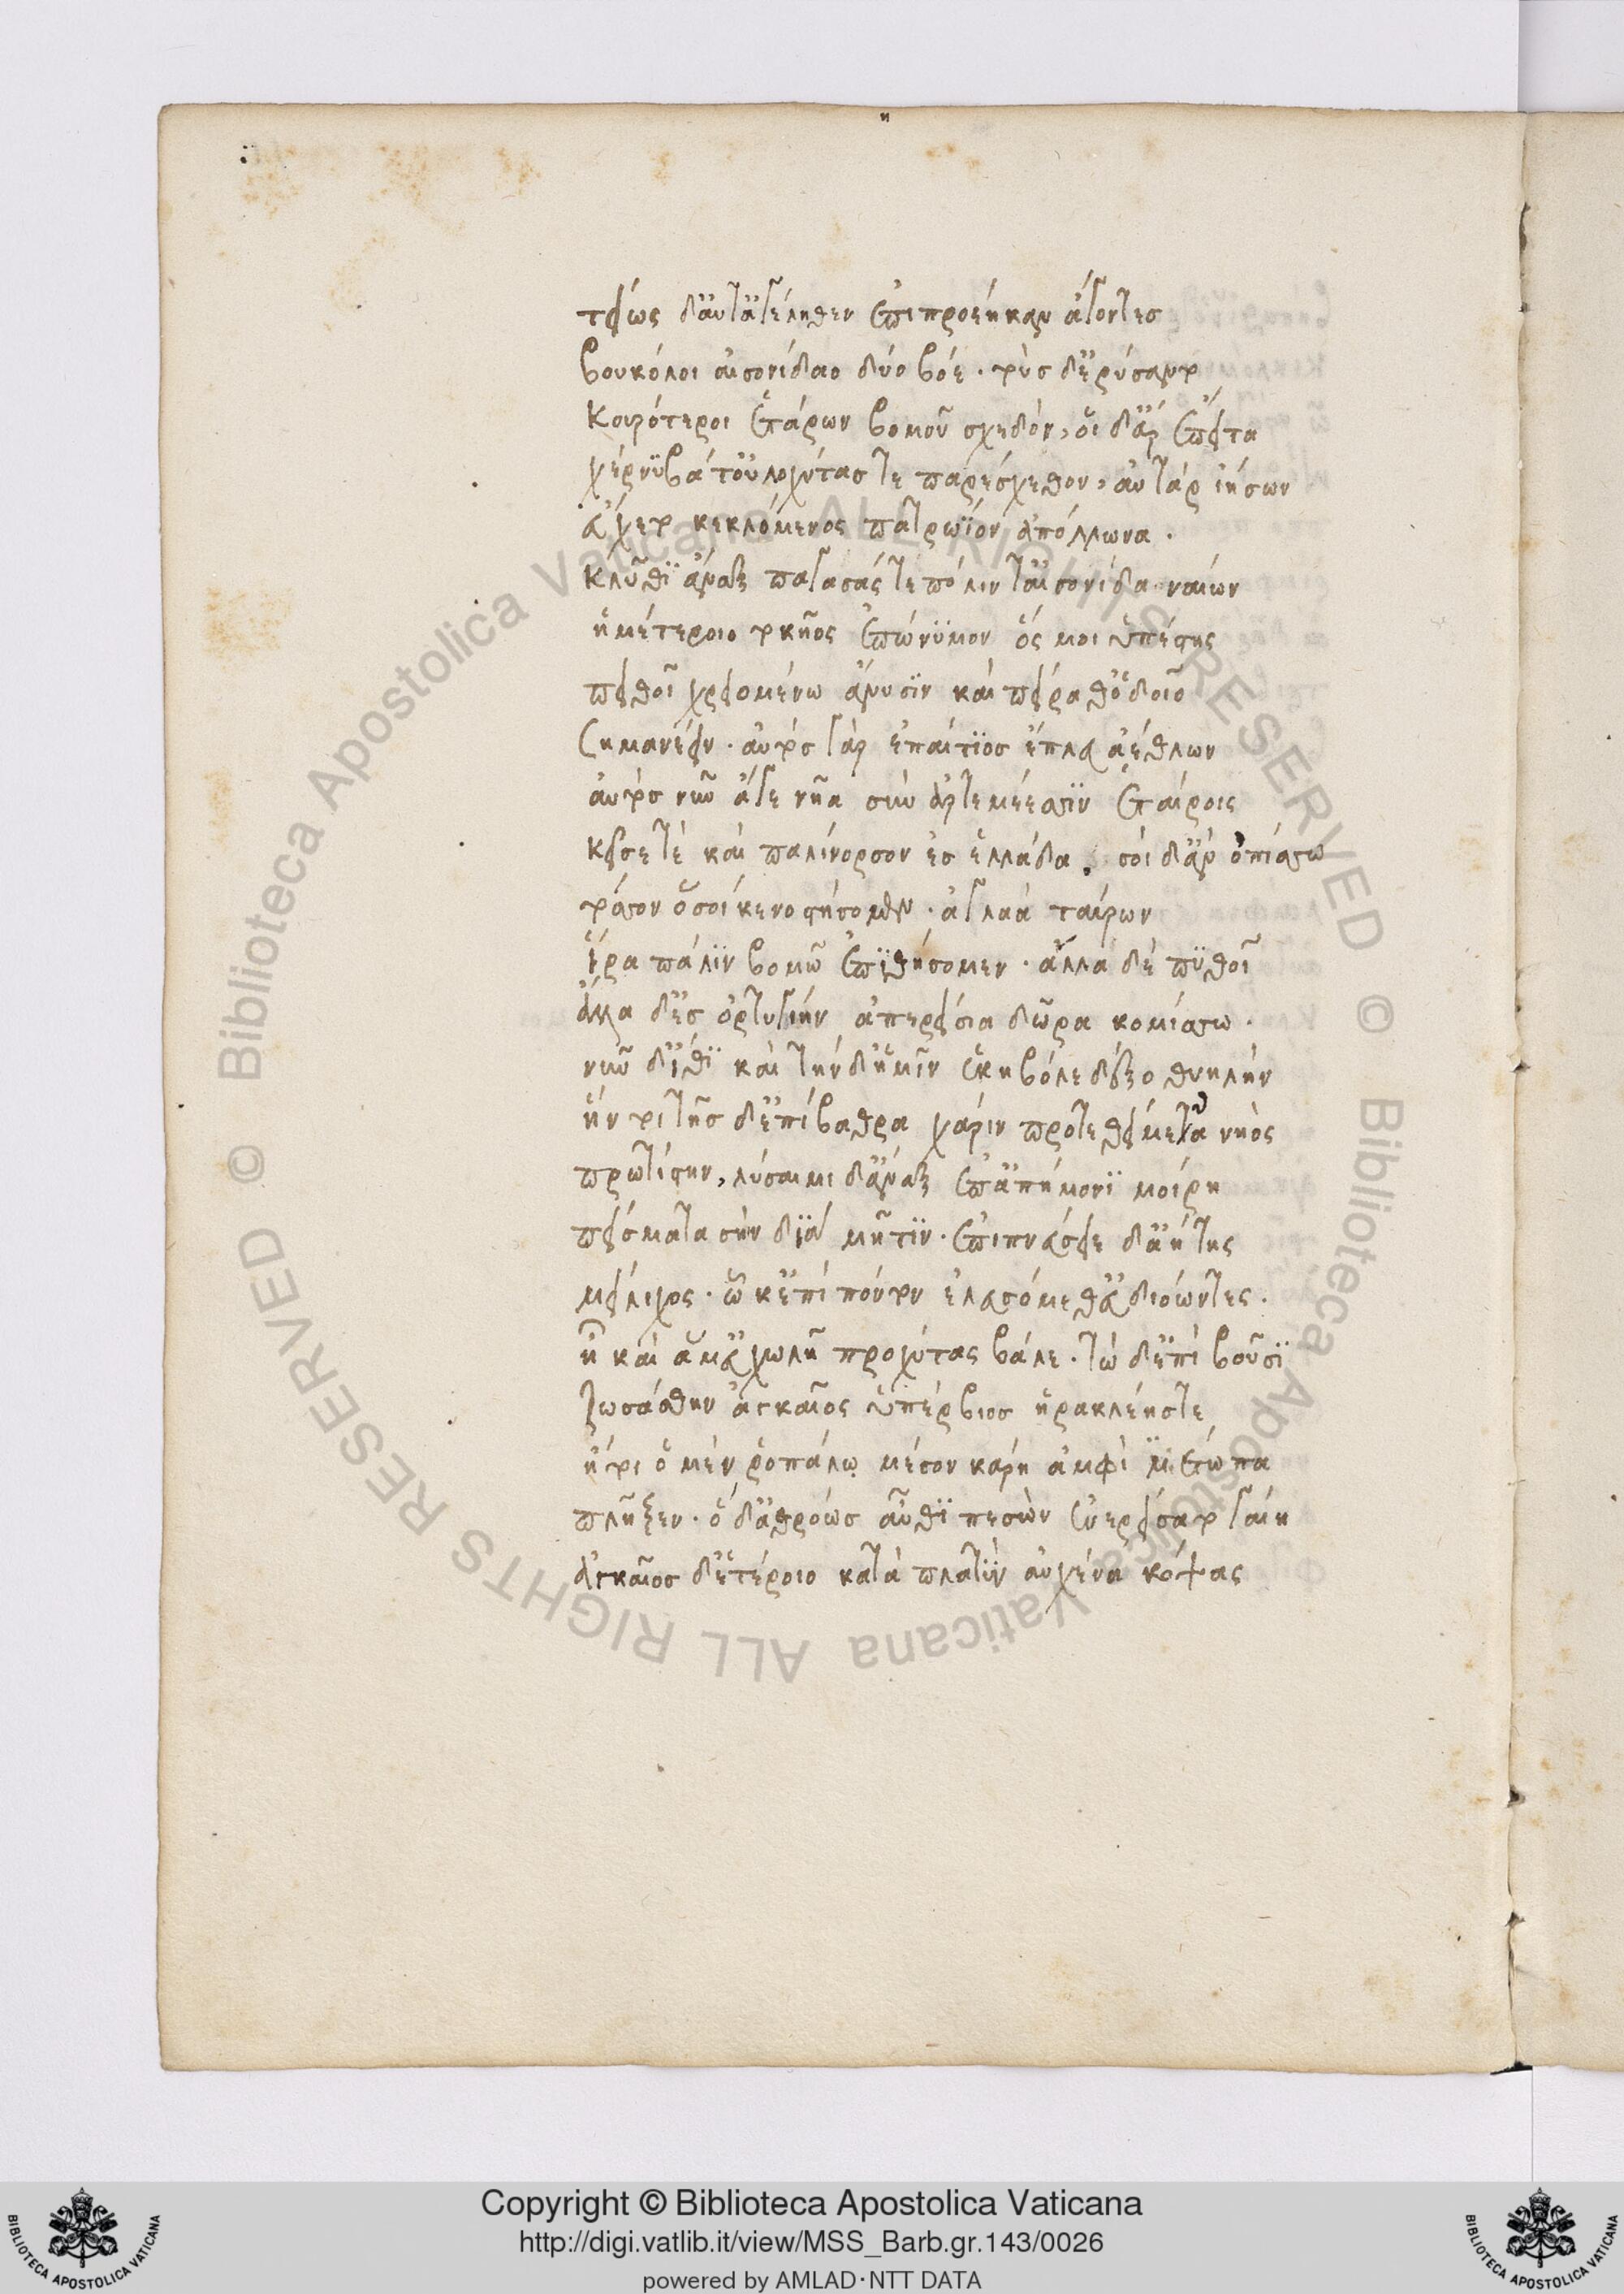 τείως δ' αὖτ' ἀγέληθεν ἐπιπροέηκαν ἄγοντες
βουκόλοι αἰσονίδαο δύο βόε. τοὺς δ' ἐρύσαντο
κουρότεροι ἑτάρων βομοῦ σχεδόν, οἱ δ' ἄρ' ἔπειτα
χέρνιβά τ' οὐλοχύτας τε παρέσχεθον, αὐτὰρ ἰήσων
εὔχετο κεκλόμενος πατρώϊον ἀπόλλωνα.
κλῦθι ἄναξ παγασάς τε πόλιν τ' αἰσονίδα ναίων
ἡμετέροιο τοκῆος ἐπώνυμον ὅς μοι ὑπέστης
πυθοῖ χρειομένω ἄνυσιν καὶ πείραθ' ὁδοῖο
σημανέειν. αὐτὸς γὰρ ἐπαίτιος ἔπλευ ἀέθλων
αὐτὸς νῦν ἄγε νῆα σὺν ἀρτεμέεσσιν ἑταίροις
κεῖσέ τε καὶ παλίνορσον ἐς ἑλλάδα. σοὶ δ' ἂν ὀπίσσω
τόσσον ὅσοί κεν νοστήσομεν. ἀγλαὰ ταύρων
ἱρὰ πάλιν βομῷ ἐπιθήσομεν. ἄλλα δὲ πυθοῖ
ἄλλα δ' ἐς ὀρτυγίην ἀπερείσια δῶρα κομίσσω.
νῦν δ' ἴθι καὶ τήνδ' ἡμῖν ἑκηβόλε δέξο θυηλήν
ἥν τοι τῆσδ' ἐπίβαθρα χάριν προτεθείμεθα νηὸς
πρωτίστην, λύσαιμι δ' ἄναξ ἐπ' ἀπήμονι μοίρη
πείσματα σὴν διὰ μῆτιν. ἐπιπνεύσειε δ' ἀήτης
μείλιχος. ᾧ κ' ἐπὶ πόντον ἐλευσόμεθ' εὐδιόωντες.
ἦ καὶ ἅμ' εὐχωλῆ προχύτας βάλε. τὼ δ' ἐπὶ βουσὶ
ζωσάσθην ἀγκαῖος ὑπέρβιος ἡρακλέης τε
ἤτοι ὁ μὲν ῥοπάλῳ μέσον κάρη ἀμφὶ μέτωπα
πλῆξεν. ὁ δ' ἀθρόως αὖθι πεσὼν ἐνερείσατο γαίη
ἀγκαῖος δ' ἑτέροιο κατὰ πλατὺν αὐχένα κόψας
Copyright © Biblioteca Apostolica Vaticana
http://digi.vatlib.it/view/MSS_Barb.gr.143/0026
powered by AMLAD·NTT DATA